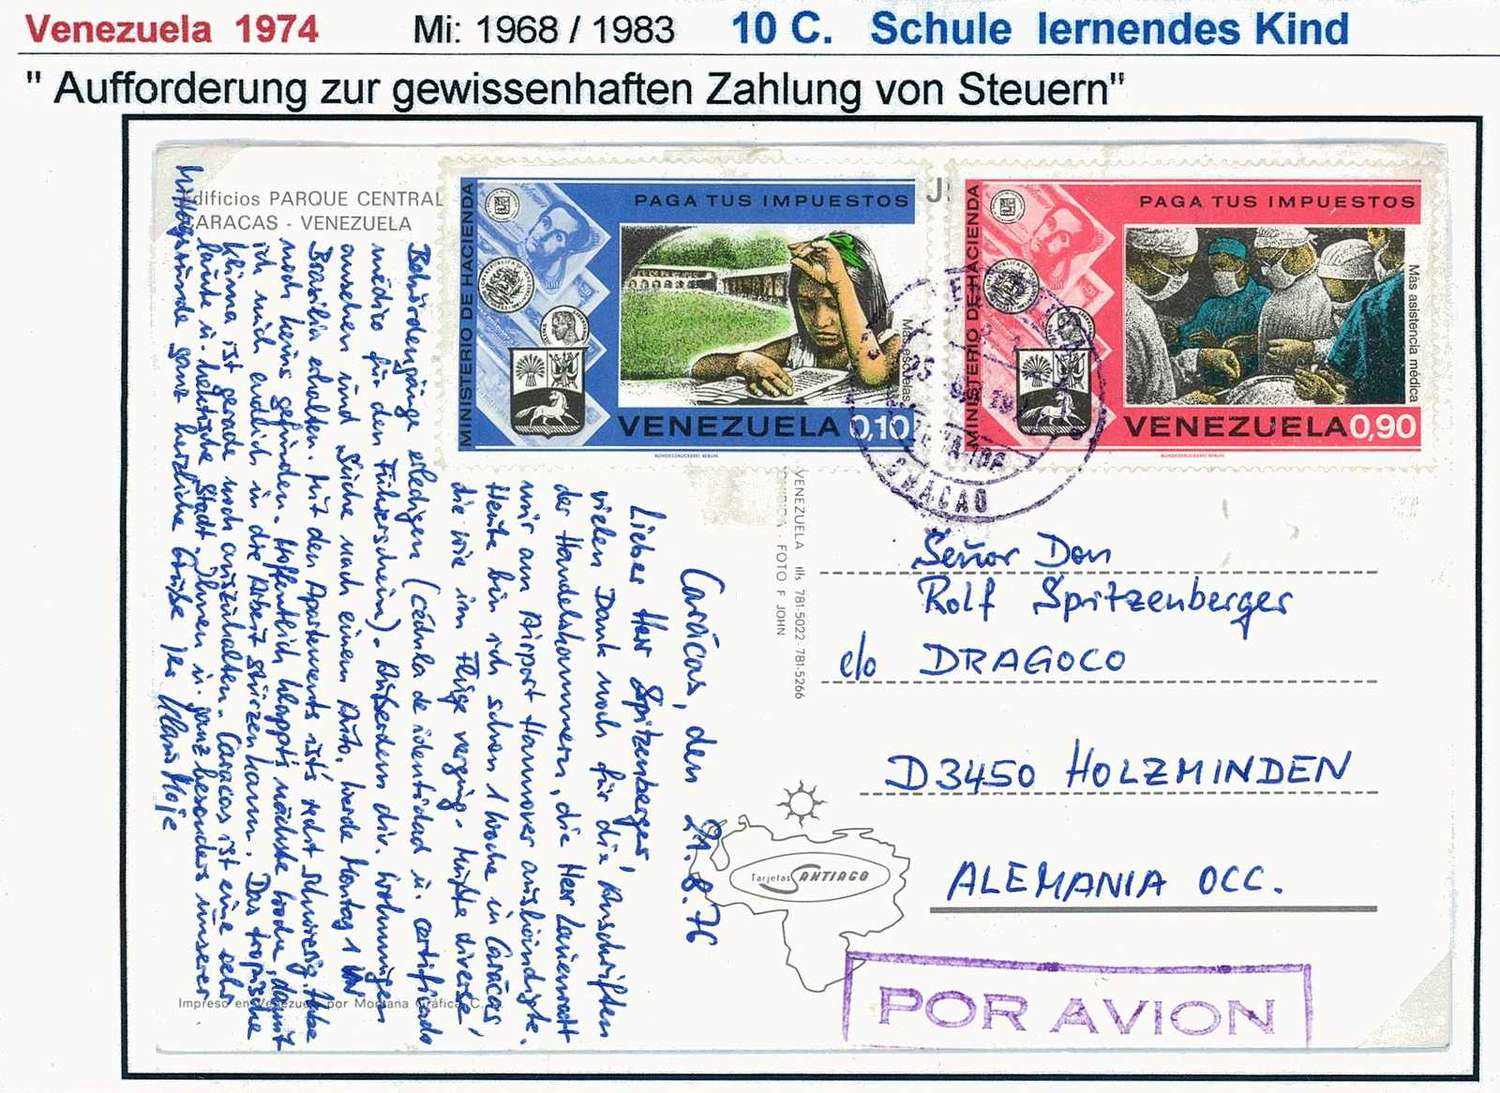 Venezuela 1974 Mi: 1968 / 1983 10 C. Schule lernendes Kind
" Aufforderung zur gewissenhaften Zahlung von Steuern"
Edificios PARQUE CENTRAL
CARACAS - VENEZUELA
MINISTERIO DE HACIENDA
PAGA TUS IMPUESTOS
Más escuelas
VENEZUELA 0,10
BUNDESDRUCKEREI BERLIN
MINISTERIO DE HACIENDA
PAGA TUS IMPUESTOS
Más asistencia médica
VENEZUELA 0,90
BUNDESDRUCKEREI BERLIN
CHACAO
Caracas, den 21.8.76
Lieber Herr Spitzenberger,
vielen Dank noch für die Anschriften
der Handelskammern, die Herr Lauenrott
mir am Airport Hannover aushändigte.
Heute bin ich schon 1 Woche in Caracas,
die wie im Fluge verging. Mußte diverse
Behördengänge erledigen (cédula de identidad u. certificado
médico für den Führerschein). Außerdem div. Wohnungen
ansehen und Suche nach einem Auto. Werde Montag 1 VW
Brasilia erhalten. Mit den Apartements ist's recht schwierig. Habe
noch keins gefunden. Hoffentlich klappt's nächste Woche, damit
ich mich endlich in die Arbeit stürzen kann. Das tropische
Klima ist gerade noch auszuhalten. Caracas ist eine sehr
laute u. hektische Stadt. Ihnen u. ganz besonders unserer
ganz herzliche Grüße Ihr Klaus
VENEZUELA Tlfs 781-5022 781-5266
FOTO F JOHN
Señor Don
Rolf Spitzenberger
c/o DRAGOCO
D3450 HOLZMINDEN
ALEMANIA OCC.
Tarjetas SANTIAGO
Impreso en Venezuela por Montana Gráfica C.
POR AVION